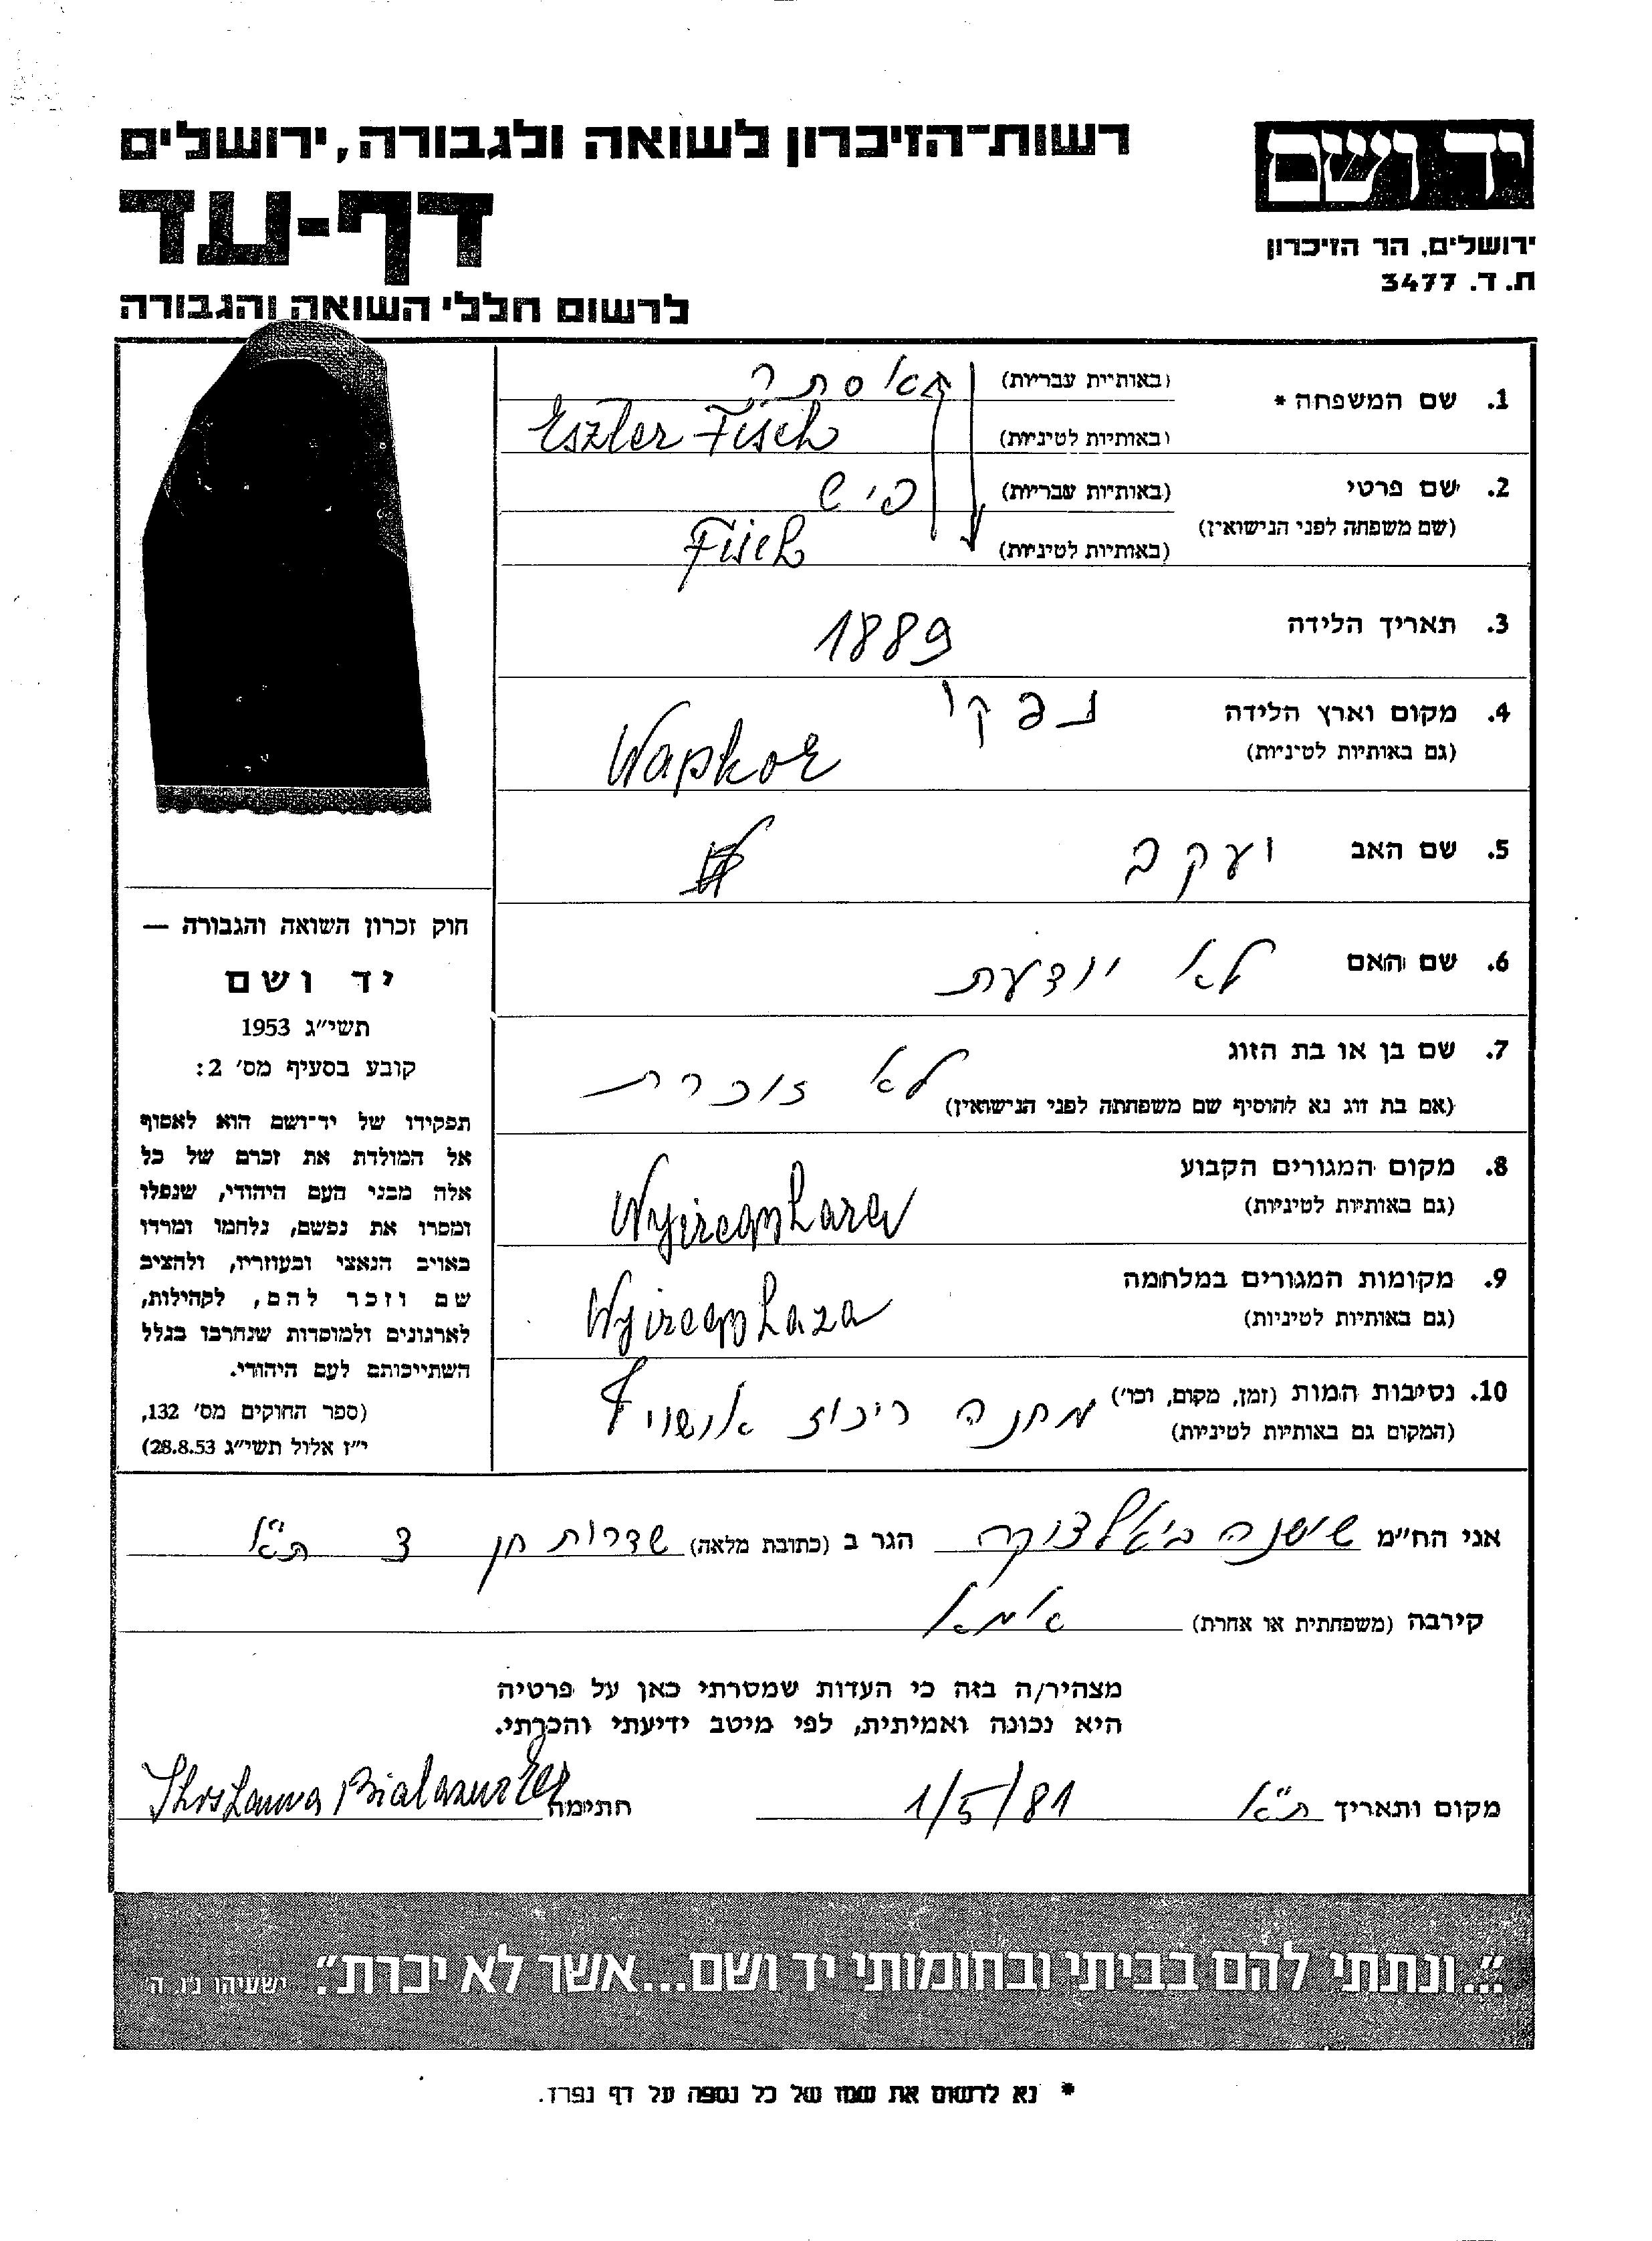 רשות-הזיכרון לשואה ולגבורה, ירושלים
דף-עד
לרשום חללי השואה והגבורה
יד ושם
ירושלים, הר הזיכרון
ת.ד. 3477
1. שם המשפחה * (באותיות עבריות) אסתר
(באותיות לטיניות) Eszter Fisch
2. שם פרטי (באותיות עבריות) פיש
(שם משפחה לפני הנישואין) (באותיות לטיניות) Fisch
3. תאריך הלידה 1889
4. מקום וארץ הלידה נפקו
(גם באותיות לטיניות) Napkor
5. שם האב יעקב
6. שם האם לא יודעת
7. שם בן או בת הזוג לא זוכרת
(אם בת זוג נא להוסיף שם משפחתה לפני הנישואין)
8. מקום המגורים הקבוע
(גם באותיות לטיניות)
9. מקומות המגורים במלחמה
(גם באותיות לטיניות)
10. נסיבות המות (זמן, מקום, וכו') מחנה ריכוז אושוויץ
(המקום גם באותיות לטיניות)
חוק זכרון השואה והגבורה —
יד ושם
תשי"ג 1953
קובע בסעיף מס' 2:
תפקידו של יד־ושם הוא לאסוף
אל המולדת את זכרם של כל
אלה מבני העם היהודי, שנפלו
ומסרו את נפשם, נלחמו ומרדו
באויב הנאצי ובעוזריו, ולהציב
שם וזכר להם, לקהילות,
לארגונים ולמוסדות שנחרבו בגלל
השתייכותם לעם היהודי.
(ספר החוקים מס' 132,
י"ז אלול תשי"ג 28.8.53)
אני הח"מ שושנה הגר ב (כתובת מלאה) שדרות חן 3 ת"א
קירבה (משפחתית או אחרת) אמא
מצהיר/ה בזה כי העדות שמסרתי כאן על פרטיה
היא נכונה ואמיתית, לפי מיטב ידיעתי והכרתי.
מקום ותאריך ת"א 1/5/81 חתימה
"...ונתתי להם בביתי ובחומותי יד ושם...אשר לא יכרת". ישעיהו נ"ו, ה'
* נא לרשום את שמו של כל נספה על דף נפרד.